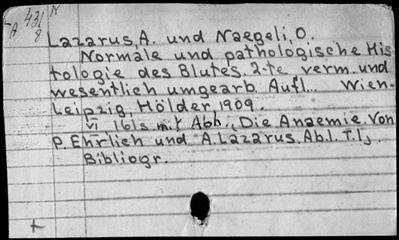 A 431/8 N
Lazarus, A. und Naegeli, O.
Normale und pathologische His
tologie des Blutes. 2-te verm. und
wesentlich umgearb. Aufl... Wien-
Leipzig, Hölder 1909.
VI 161s. mit Abb., "Die Anaemie. Von
P. Ehrlich und A. Lazarus. Abl. T. 1,,
Bibliogr.